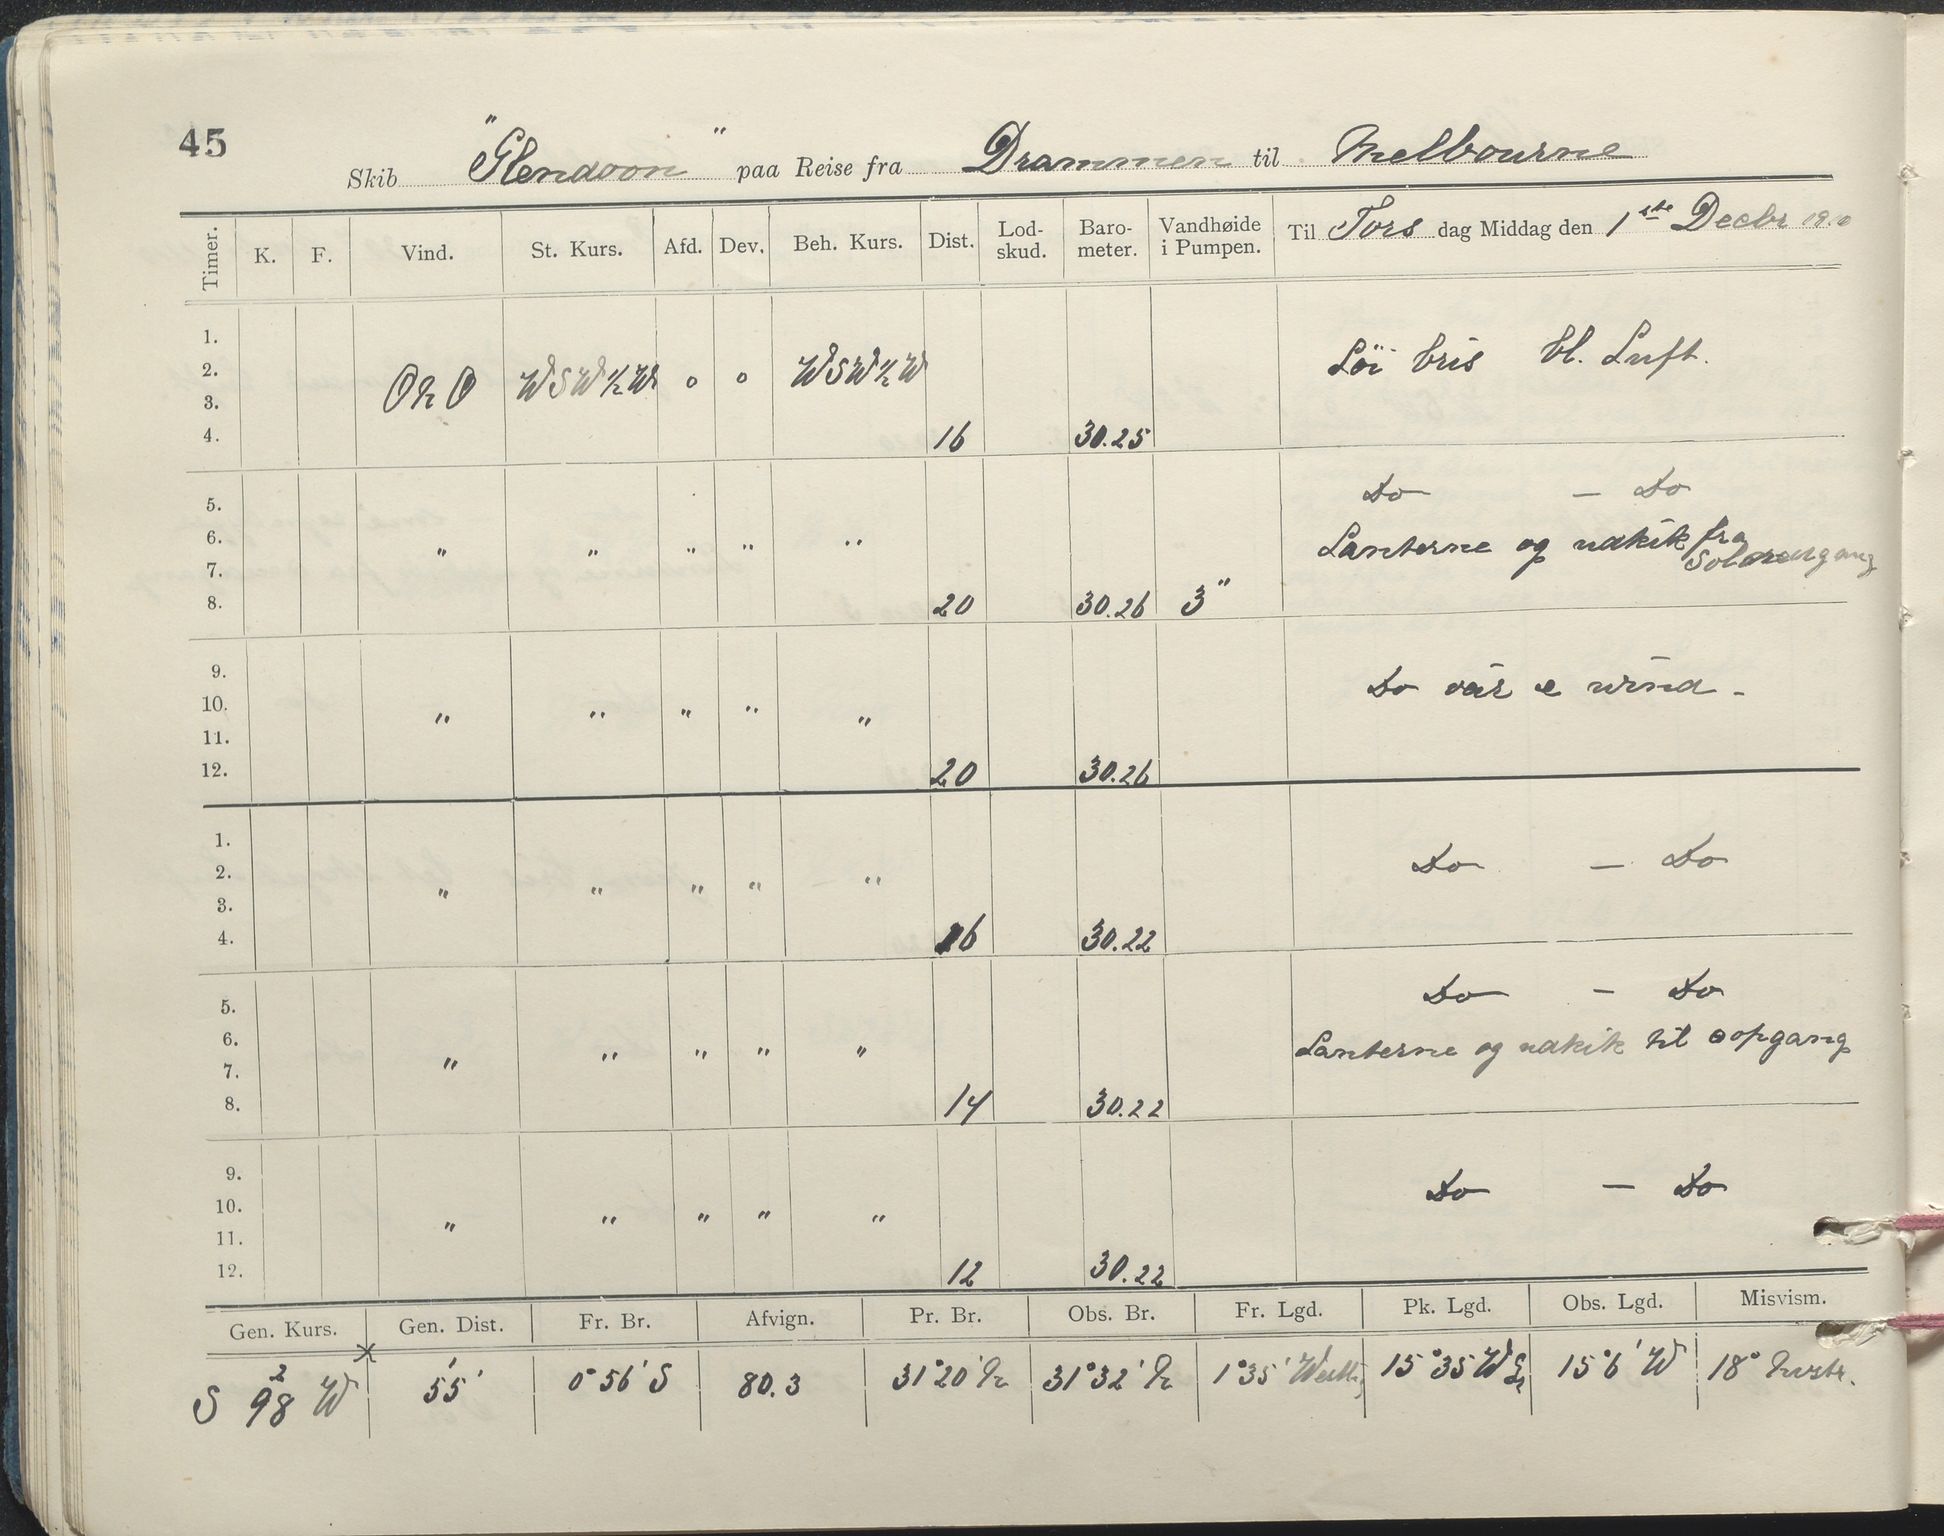 45
Skib "Glendoon" paa Reise fra Drammen til Melbourne
Timer. K. F. Vind. St. Kurs. Afd. Dev. Beh. Kurs. Dist. Lod-skud. Baro-meter. Vandhøide i Pumpen. Til Tors dag Middag den 1ste Decbr 1910
1.
2. Löi bris bl. Luft.
3. ONO WSW½W 0 0 WSW½W
4. 16 30.25
5. Do — Do
6. " " " " " Lanterne og udkik fra
7. Solnedgang
8. 20 30.26 3"
9.
10. " " " " " Do vær & vind -
11.
12. 20 30.26
1.
2. " " " " " Do — Do
3.
4. 16 30.22
5. Do — Do
6. " " " " " Lanterne og udkik til opgang
7.
8. 14 30.22
9.
10. " " " " " Do — Do
11.
12. 12 30.22
Gen. Kurs. Gen. Dist. Fr. Br. Afvign. Pr. Br. Obs. Br. Fr. Lgd. Pk. Lgd. Obs. Lgd. Misvism.
S 98 W 55' 0°56' S 80.3 31°20' N 31°32' N 1°35' 15°35 W 15°6' W 18°